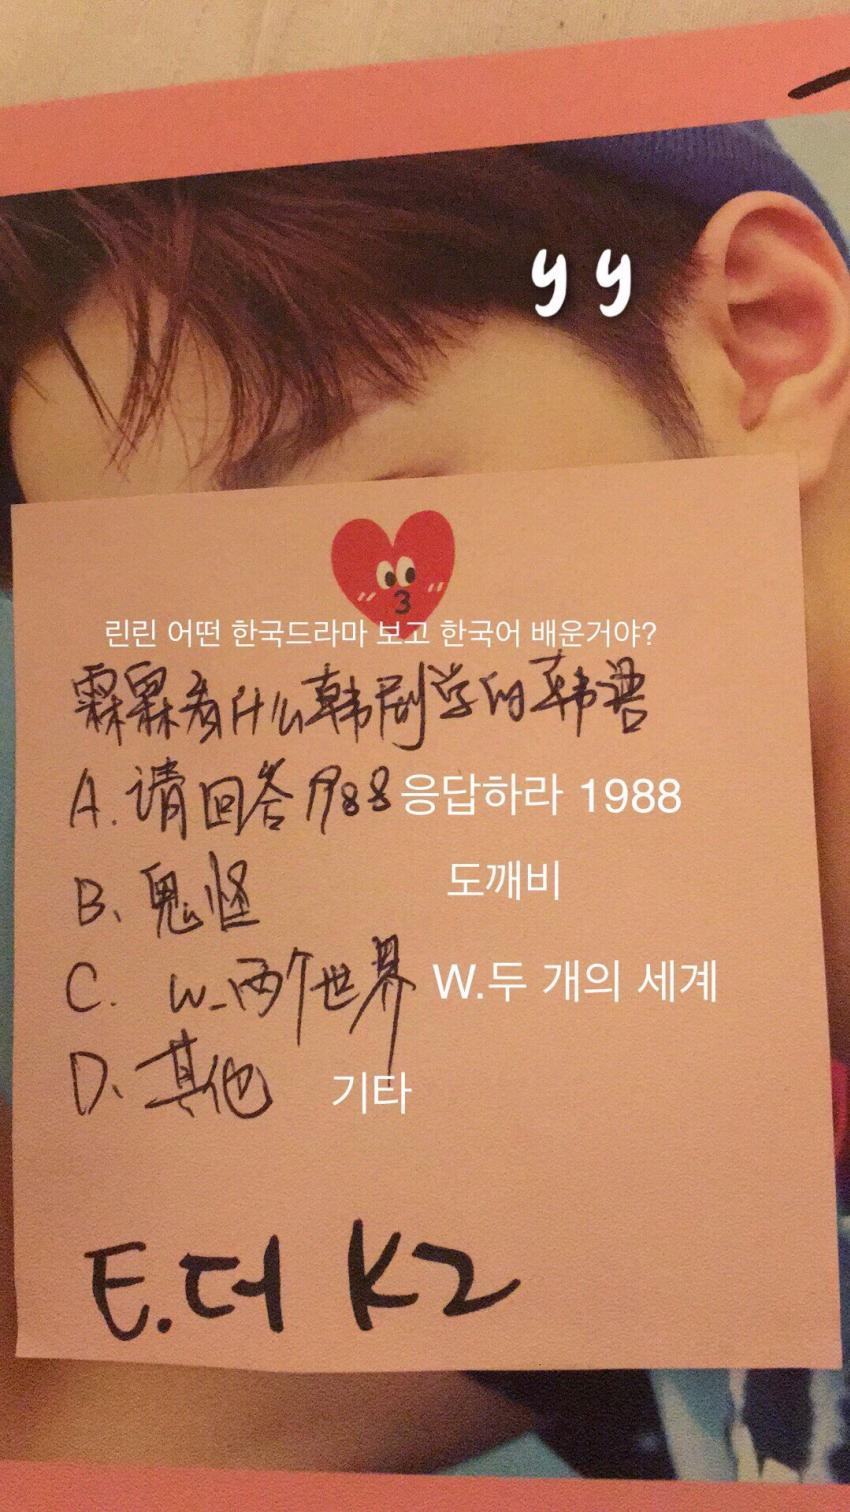 yy
린린 어떤 한국드라마 보고 한국어 배운거야?
霖霖看什么韩剧学的韩语
A.请回答1988 응답하라 1988
B、鬼怪 도깨비
C. W-两个世界 W.두 개의 세계
D、其他 기타
E.더 K2